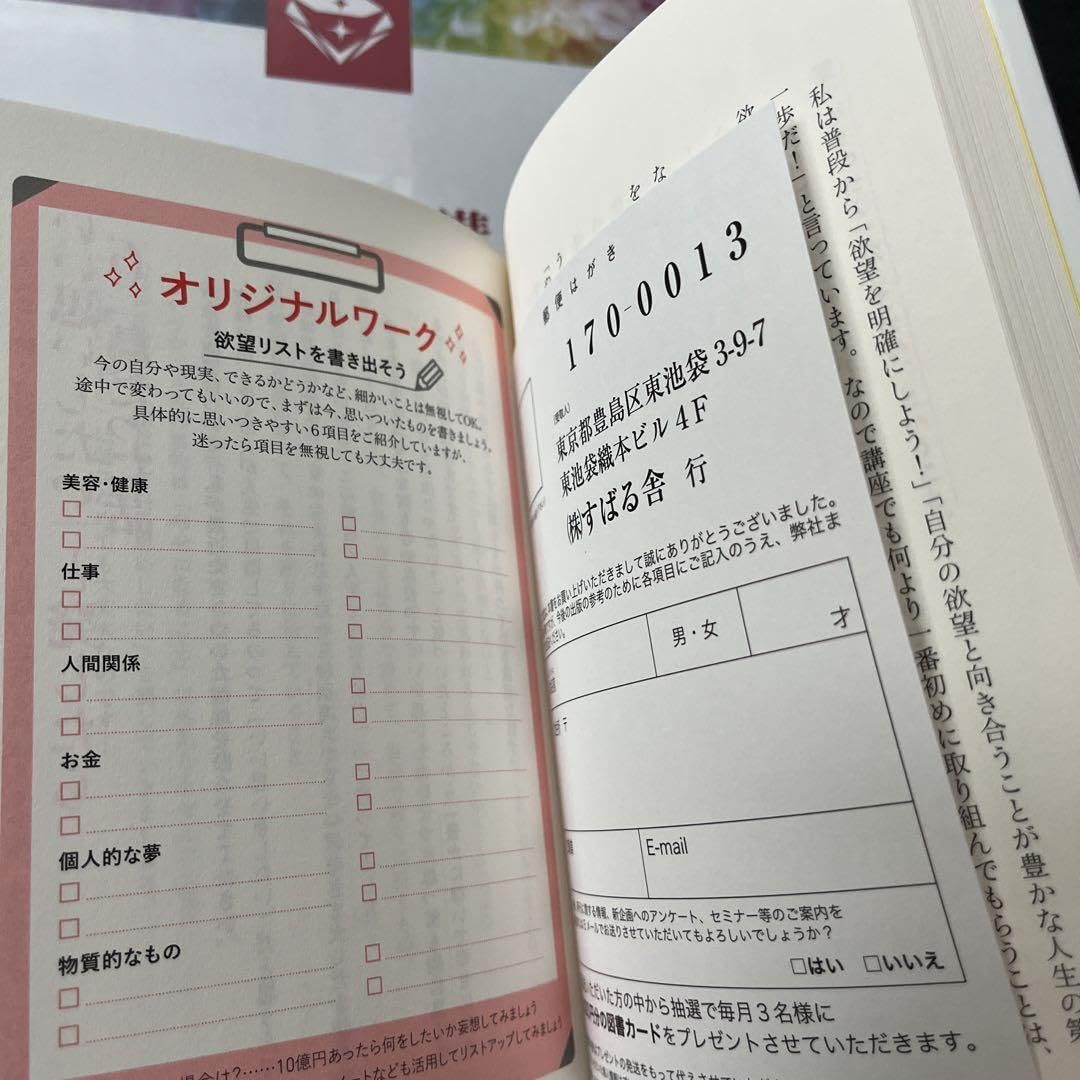 オリジナルワーク
欲望リストを書き出そう
今の自分や現実、できるかどうかなど、細かいことは無視してOK。
途中で変わってもいいので、まずは今、思いついたものを書きましょう。
具体的に思いつきやすい6項目をご紹介していますが、
迷ったら項目を無視しても大丈夫です。
美容・健康
仕事
人間関係
お金
個人的な夢
物質的なもの
10億円あったら何をしたいか妄想してみましょう
ートなども活用してリストアップしてみましょう
私は普段から「欲望を明確にしよう!」「自分の欲望と向き合うことが豊かな人生の第
一歩だ!」と言っています。なので講座でも何より一番初めに取り組んでもらうことは、
欲
な
を
郵便はがき
170-0013
(受取人)
東京都豊島区東池袋3-9-7
東池袋織本ビル4F
㈱すばる舎 行
お買い上げいただきまして誠にありがとうございました。
今後の出版の参考のために各項目にご記入のうえ、弊社ま
ださい。
男・女
才
〒
E-mail
に関する情報、新企画へのアンケート、セミナー等のご案内を
メールでお送りさせていただいてもよろしいでしょうか?
□はい □いいえ
いただいた方の中から抽選で毎月3名様に
円分の図書カードをプレゼントさせていただきます。
プレゼントの発送をもって代えさせていただ